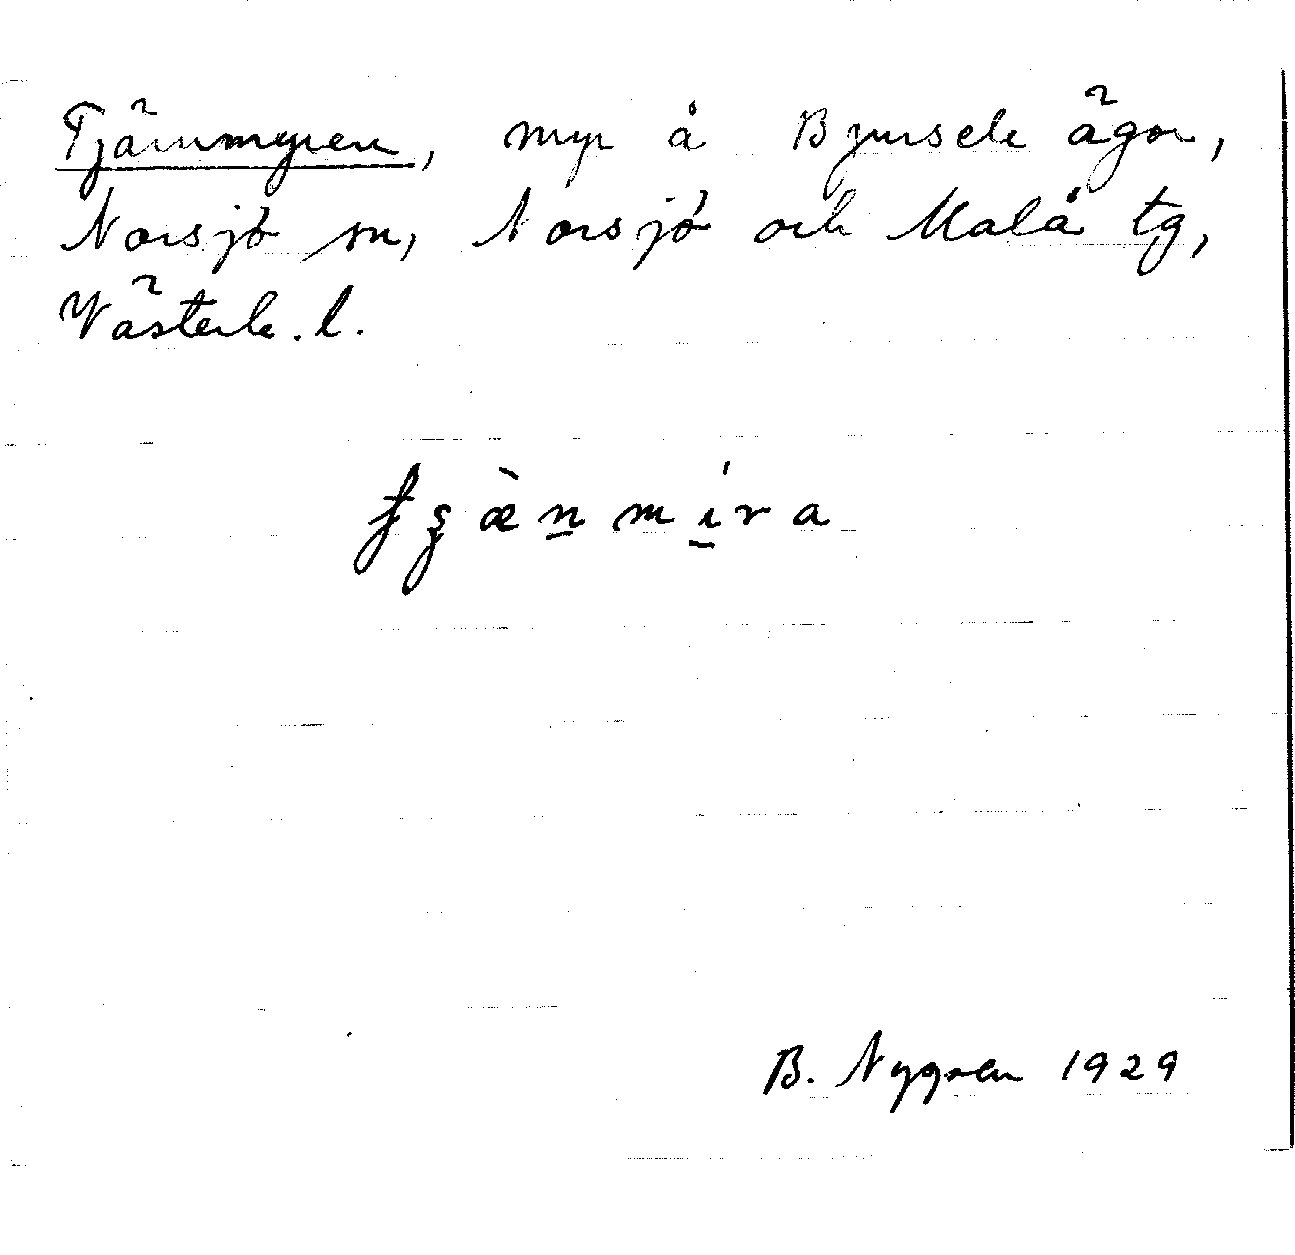 Tjärnmyren, myr å Bjursele ägor,
Norsjö sn, Norsjö och Malå tg,
Västerb. l.
B. Nygren 1929